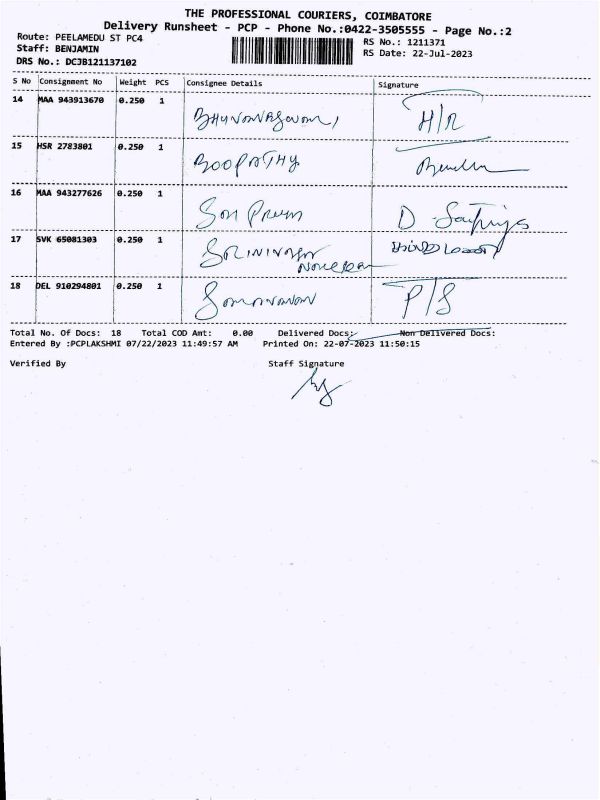 THE PROFESSIONAL COURIERS, COIMBATORE
Delivery Runsheet - PCP - Phone No.:0422-3505555 - Page No.:2
Route: PEELAMEDU ST PC4
RS No.: 1211371
Staff: BENJAMIN
RS Date: 22-Jul-2023
DRS No.: DCJB121137102
S No Consignment No Weight PCS Consignee Details Signature
14 MAA 943913670 0.250 1 H/R
15 HSR 2783801 0.250 1 BOOPATHY
16 MAA 943277626 0.250 1 D
17 SVK 65081303 0.250 1
18 DEL 910294801 0.250 1 P/S
Total No. Of Docs: 18 Total COD Amt: 0.00 Delivered Docs: Non Delivered Docs:
Entered By :PCPLAKSHMI 07/22/2023 11:49:57 AM Printed On: 22-07-2023 11:50:15
Verified By Staff Signature